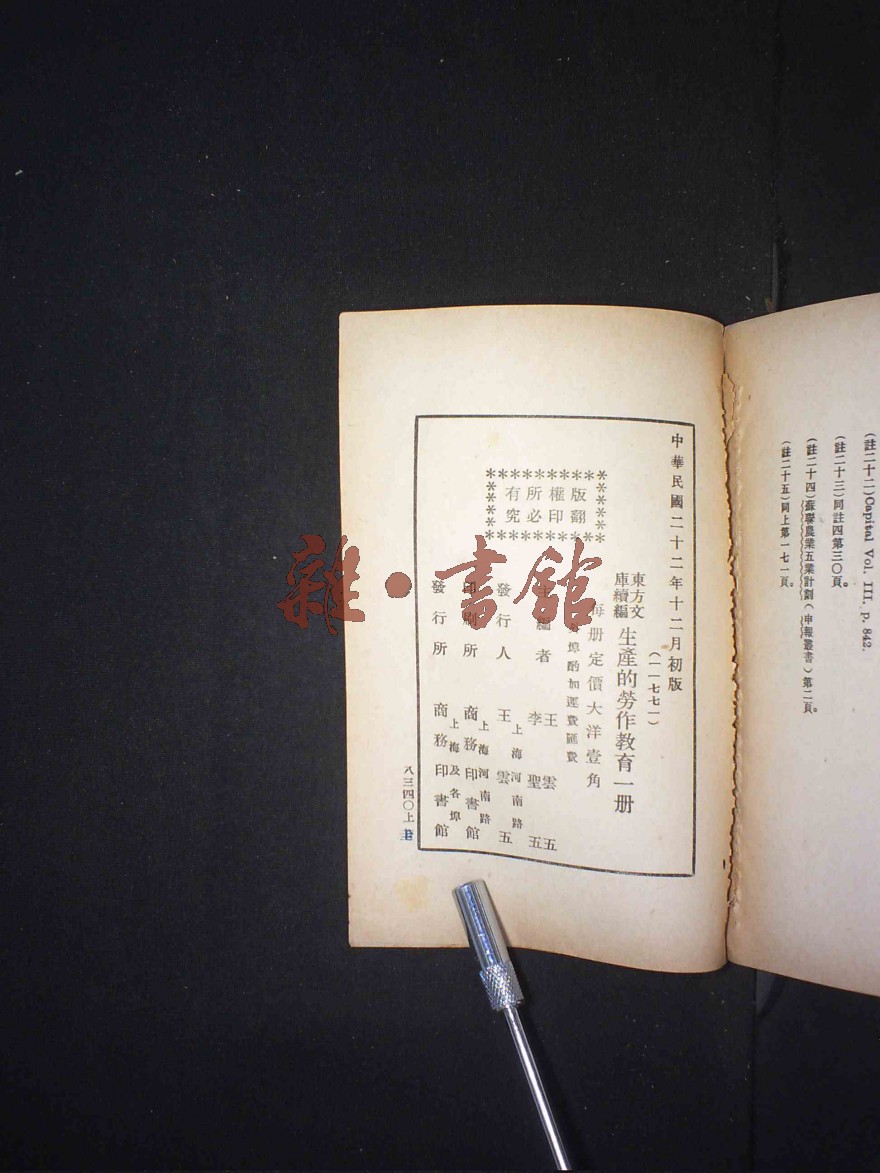 (註二十二)Capital Vol. III, p. 842.
(註二十三)同註四第三〇頁。
(註二十四)蘇聯農業五業計劃(申報叢書)第二頁。
(註二十五)同上第一七一頁。
中華民國二十二年十二月初版
(一一七七一)
東方文
庫續編
生產的勞作教育一冊
每冊定價大洋壹角
外埠酌加運費匯費
版權所有
翻印必究
主編者
王雲五
李聖五
發行人
上海河南路
王雲五
印刷所
上海河南路
商務印書館
發行所
上海及各埠
商務印書館
八三四〇上
雜·書館